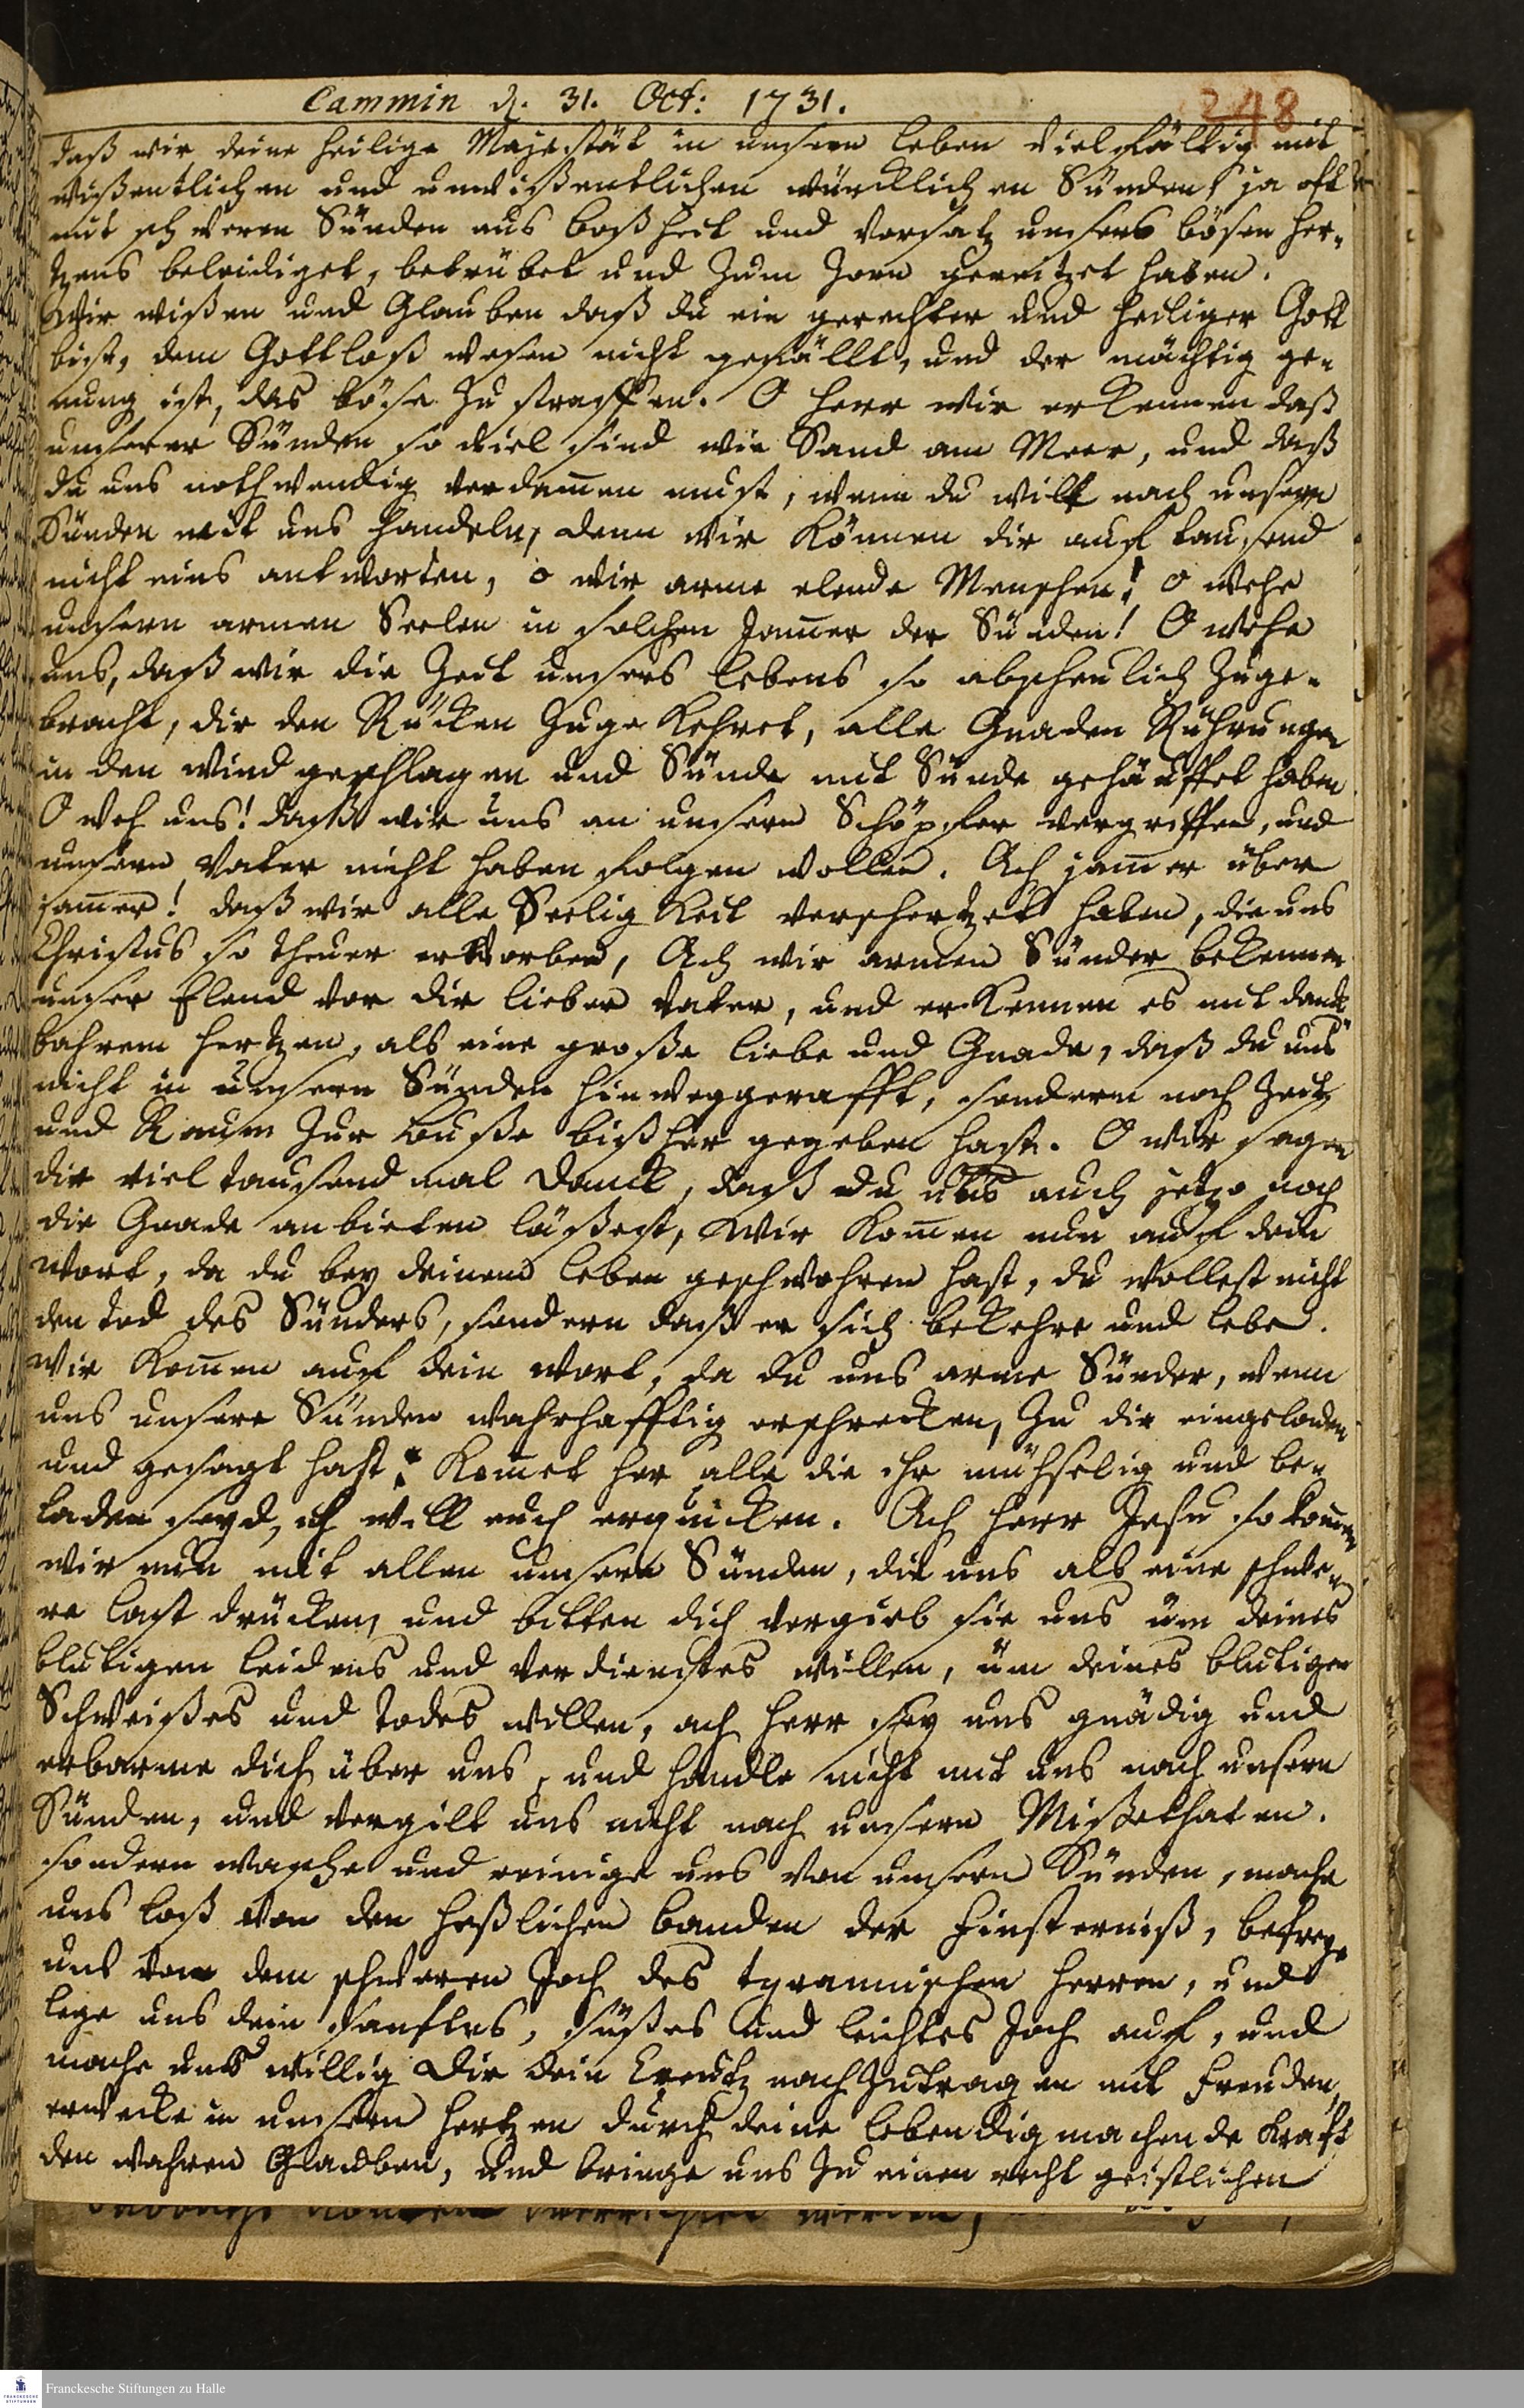 Cammin d. 31. Oct: 1731.
248
daß wir deine heilige Majestät in unserm leben vielfältig mit
wißentlichen und unwißentlichen würcklichen Sünden ja oft
mit schweren Sünden aus boßheit und vorsatz unsers bösen her-
tzens beleidiget, betrübet und zum Zorn gereitzet haben.
Wir wißen und Glauben daß du ein gerechter und heiliger Gott
bist, dem Gottloß wesen nicht gefällt, und der mächtig ge-
nung ist, das böse zu straffen. O herr wir erkennen daß
unserer Sünden so viel sind wie Sand am Meer, und daß
du uns nothwendig verdam̄en must, wenn du wilt nach unsern
Sünden mit uns handeln, denn wir können dir auf tausend
nicht eins antworten, o wir arme elende Menschen! o wehe
unsern armen Seelen in solchen Jam̄er der Sünden! O wehe
uns, daß wir die Zeit unsers lebens so abscheulich zuge-
bracht, dir den Rücken zuge kehret, alle Gnaden Rührungen
in den wind geschlagen und Sünde mit Sünde gehäuffet haben
O weh uns! daß wir uns an unserm Schöpfer vergriffen, und
unserm Vater nicht haben folgen wollen. Ach jam̄er über
jam̄er! daß wir alle Seeligkeit verschertzet haben, die uns
Christus so theuer erworben, Ach wir armen Sünder bekennen
unser Elend vor dir lieber Vater, und erkennen es mit danck
bahrem hertzen, als eine große liebe und Gnade, daß du uns
nicht in unsern Sünden hinweggerafft, sondern noch Zeit
und Raum zur buße bißher gegeben hast. O wir sagen
dir viel tausend mal Danck, daß du uns auch jetzo noch
die Gnade anbieten läßest, Wir kom̄en nun auf dein
wort, da du bey deinem leben geschwohren hast, du wollest nicht
den tod des Sünders, sondern daß er sich bekehre und lebe.
Wir kom̄en auf dein wort, da du uns arme Sünder, wenn
uns unsere Sünden wahrhafftig erschrecken, zu dir eingeladen
und gesagt hast: Kom̄et her alle die ihr mühselig und be-
laden seyd, ich will euch erquicken. Ach herr Jesu so kom̄en
wir nun mit allen unsern Sünden, die uns als eine schwe-
re last drücken, und bitten dich vergieb sie uns üm deines
blutigen leidens und verdienstes willen, üm deines blutigen
Schweißes und todes willen, ach herr sey uns gnädig und
erbarme dich über uns, und handle nicht mit uns nach unsern
Sünden, und vergilt uns nicht nach unsern Mißethaten.
sondern wasche und reinige uns von unsern Sünden, mache
uns loß von den heßlichen banden der Finsterniß, befreye
uns von dem schweren Joch des tyrannischen herren, und
lege uns dein sanftes, süßes und leichtes Joch auf, und
mache uns willig Dir dein Creutz nach zutragen mit Freuden,
erwecke in unsern hertzen durch deine lebendigmachende Kraft
den wahren Glauben, und bringe uns zu einen recht geistlichen
Franckesche Stiftungen zu Halle